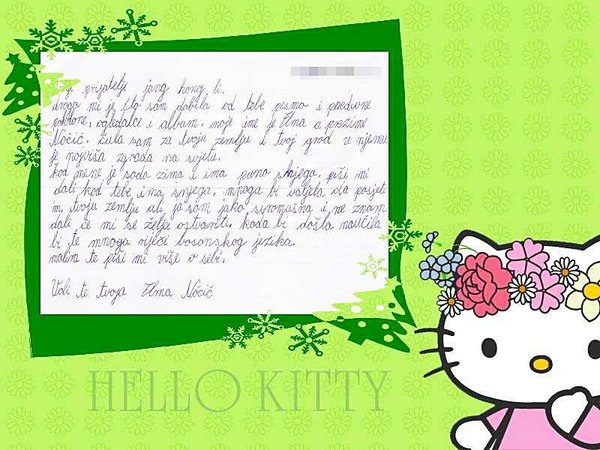 prijatelju jang hong li,
drago mi je što sam dobila od tebe pismo i predivne
poklone, ogledalce i album. moje ime je Ilma a prezime
Nočić. čula sam za tvoju zemlju i tvoj grad u njemu
je najviša zgrada na svijetu.
kod mene je sada zima i ima puno snijega, piši mi
dali kod tebe ima snijega, mnogo bi voljela da posjeti
m tvoju zemlju ali ja sam jako siromašna i ne znam
dali će mi se želja ostvariti, kada bi došla naučila
bi te mnogo riječi bosanskog jezika.
molim te piši mi više o sebi.
Voli te tvoja Ilma Nočić
HELLO KITTY